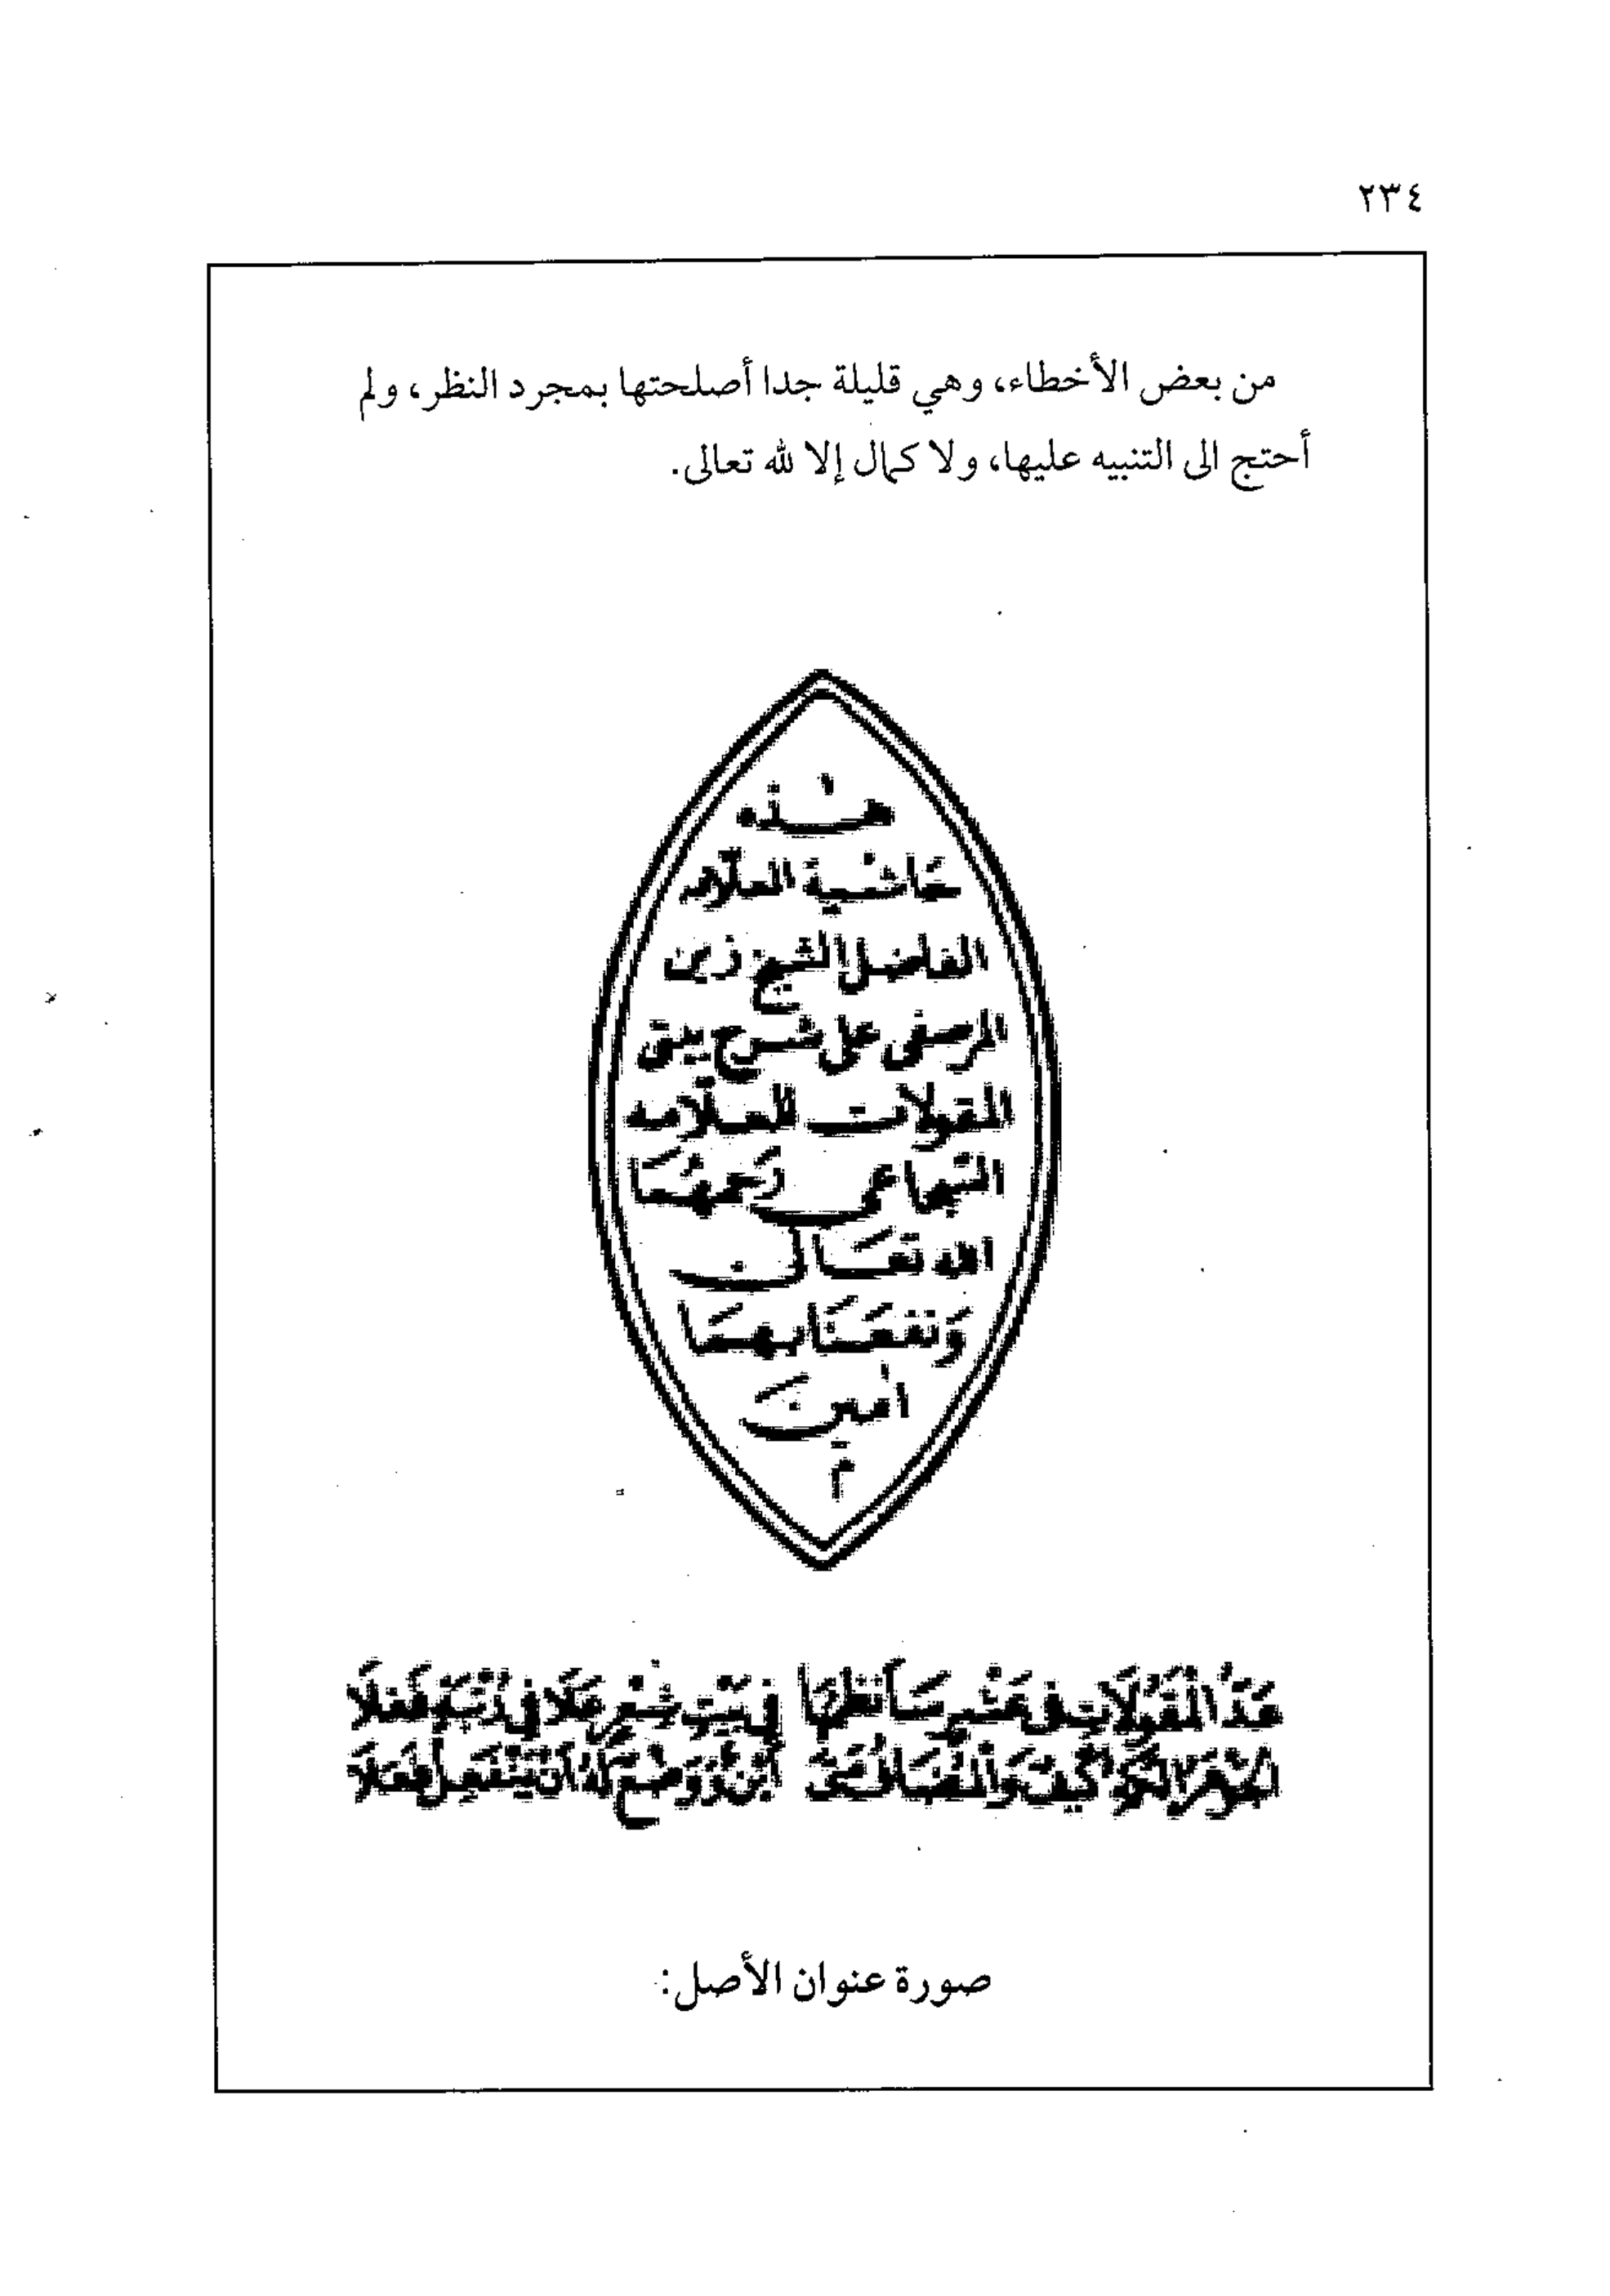 ٢٣٤
من بعض الأخطاء، وهي قليلة جدا أصلحتها بمجرد النظر، ولم
أحتج الى التنبيه عليها، ولا كمال إلا لله تعالى.
هذه
حَاشية العلّامه
الفاضل الشيخ زين
المرصفى على شرح بيتى
المقولات للعلّامه
السجاعى رَحمهُمَا
الله تعَالى
وَنفعَنَا بهمَا
امين
م
عَدُّ المَقُولَاتِ فى عَشْرٍ سَأَنظِمُهَا فِى بَيْتِ شِعْرٍ عَلَا فِى رُتْبَةٍ فَعَلَا
الجَوْهَرُ الكَمُّ كَيْفٌ وَالمُضَافُ مَتَى أَيْنٌ وَوَضْعٌ لَهُ أَنْ يَنْفَعِلْ فَعَلَا
صورة عنوان الأصل: